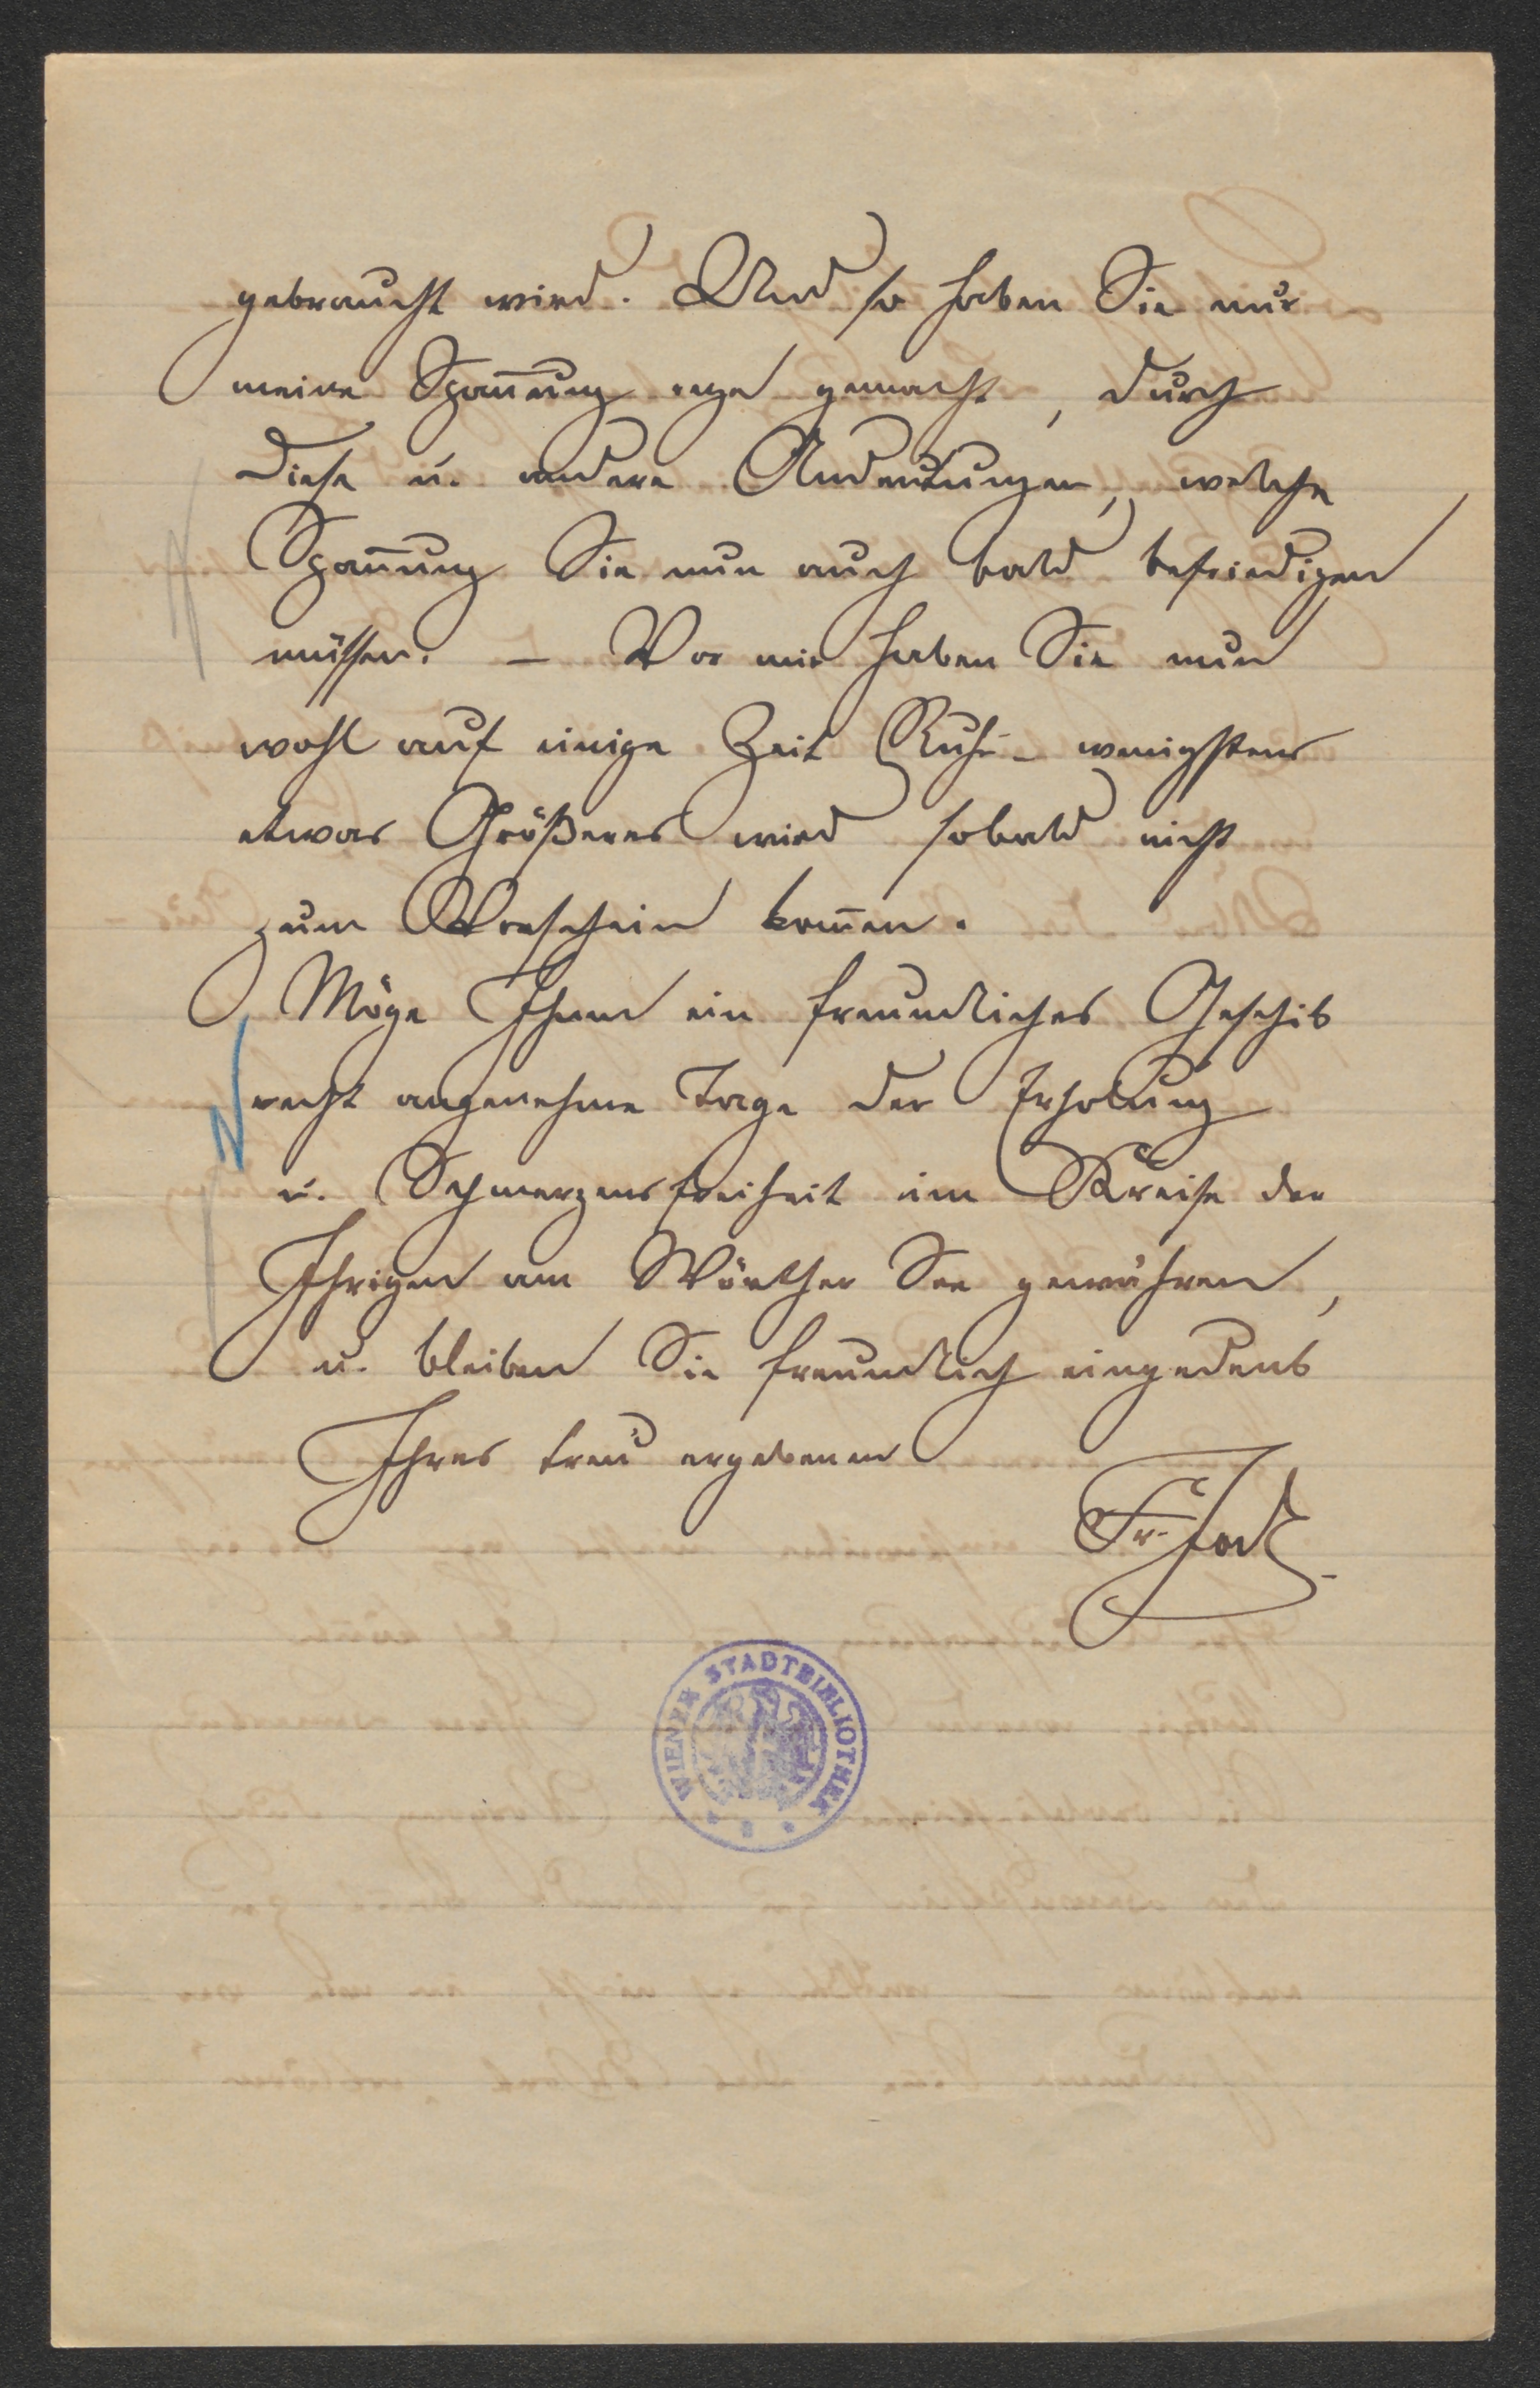 gebraucht wird. Und so haben Sie nur
meine Span̅ung rege gemacht, durch
diese u. andere Andeutungen, welche
Span̅ung Sie nun auch bald befriedigen
müssen. – Vor mir haben Sie nun
wohl auf einige Zeit Ruhe – wenigstens
etwas Größeres wird sobald nicht
zum Vorschein kom̅en.
Möge Ihnen ein freundliches Geschik
recht angenehme Tage der Erholung
u. Schmerzensfreiheit im Kreise der
Ihrigen am Wörther See gewähren,
u. bleiben Sie freundlich eingedenk
Ihres treu ergebenen
Fr. Jodl
WIENER STADTBIBLIOTHEK